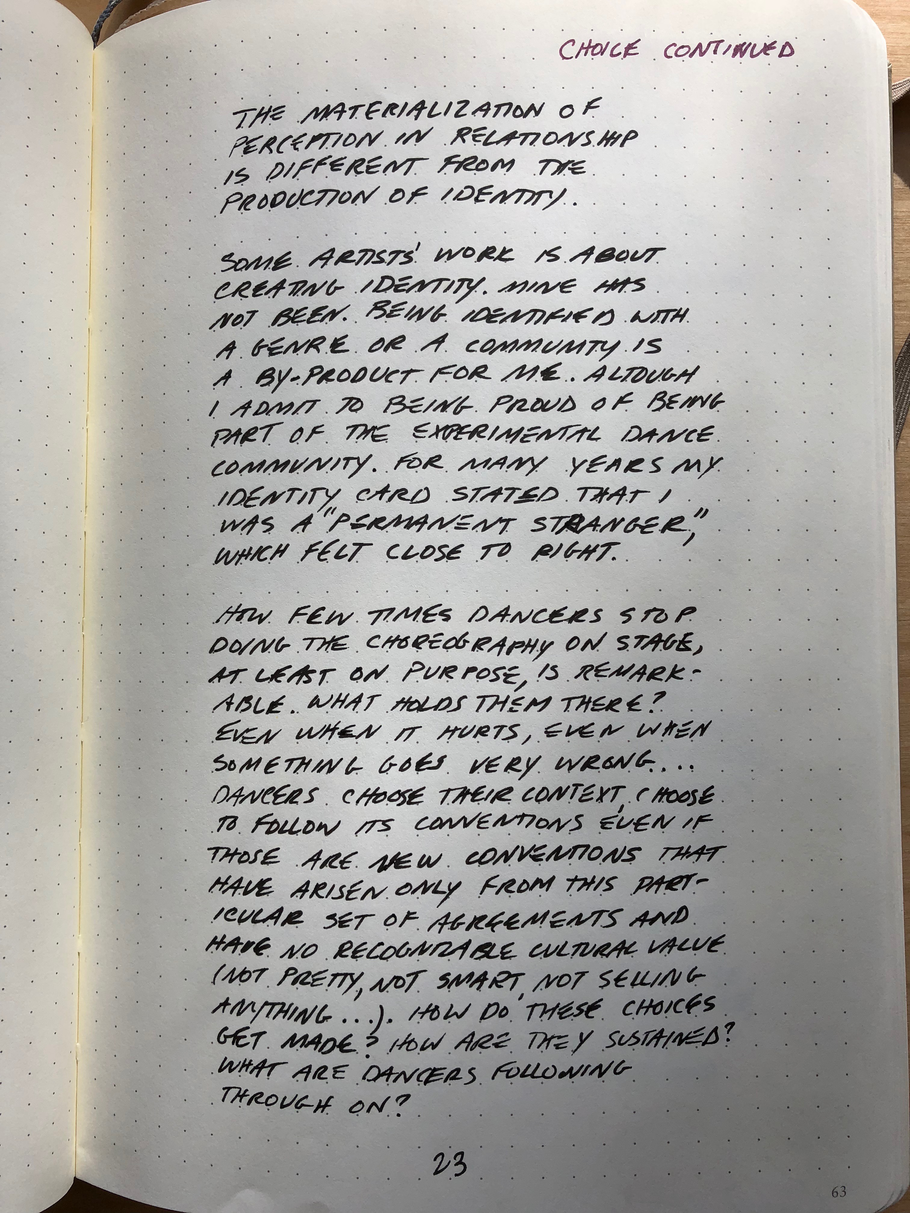 CHOICE CONTINUED
THE MATERIALIZATION OF
PERCEPTION IN RELATIONSHIP
IS DIFFERENT FROM THE
PRODUCTION OF IDENTITY.
SOME ARTISTS' WORK IS ABOUT
CREATING IDENTITY. MINE HAS
NOT BEEN. BEING IDENTIFIED WITH
A GENRE OR A COMMUNITY IS
A BY-PRODUCT FOR ME. ALTOUGH
I ADMIT TO BEING PROUD OF BEING
PART OF THE EXPERIMENTAL DANCE
COMMUNITY. FOR MANY YEARS MY
IDENTITY CARD STATED THAT I
WAS A "PERMANENT STRANGER,"
WHICH FELT CLOSE TO RIGHT.
HOW FEW TIMES DANCERS STOP
DOING THE CHOREOGRAPHY ON STAGE,
AT LEAST ON PURPOSE, IS REMARK-
ABLE. WHAT HOLDS THEM THERE?
EVEN WHEN IT HURTS, EVEN WHEN
SOMETHING GOES VERY WRONG....
DANCERS CHOOSE THEIR CONTEXT, CHOOSE
TO FOLLOW ITS CONVENTIONS EVEN IF
THOSE ARE NEW CONVENTIONS THAT
HAVE ARISEN ONLY FROM THIS PART-
ICULAR SET OF AGREEMENTS AND
HAVE NO RECOGNIZABLE CULTURAL VALUE
(NOT PRETTY, NOT SMART, NOT SELLING
ANYTHING...). HOW DO THESE CHOICES
GET MADE? HOW ARE THEY SUSTAINED?
WHAT ARE DANCERS FOLLOWING
THROUGH ON?
23
63